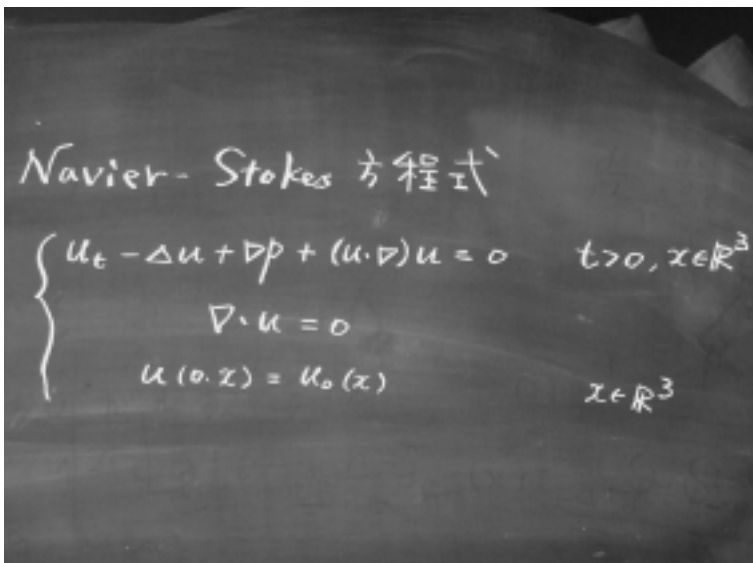 Navier-Stokes 方程式
u_t - Δu + ∇p + (u·∇)u = 0   t>0, x∈ℝ³
∇·u = 0
u(0.x) = u₀(x)   x∈ℝ³